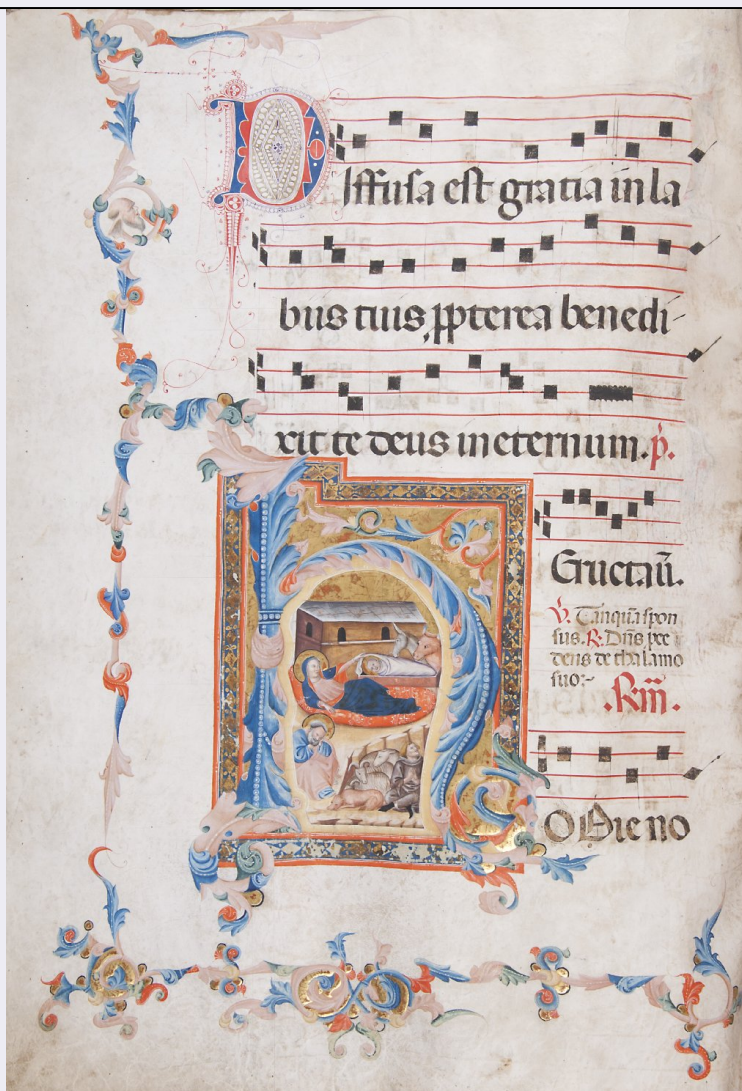 Diffusa est gratia in la
biis tuis, ppterea benedi-
xit te deus in eternum. p̄.
Eructaū.
V. Tanquā spon
sus. R. Dn̄s pce
dens de thalamo
suo:-
.Rm̄.
HODie no